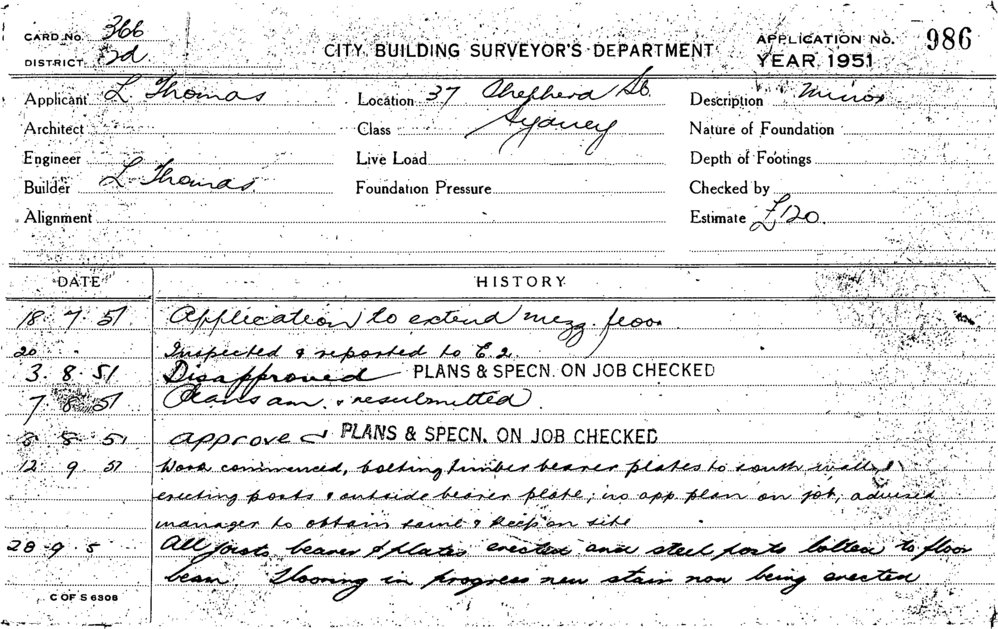 CARD No. 366
DISTRICT 2d
CITY BUILDING SURVEYOR'S DEPARTMENT
APPLICATION No. 986
YEAR 1951
Applicant L Thomas
Location 37 Shepherd St.
Description Minor
Architect
Class Sydney
Nature of Foundation
Engineer
Live Load
Depth of Footings
Builder L Thomas
Foundation Pressure
Checked by
Alignment
Estimate £120.
DATE HISTORY
18 7 51 Application to extend mezz. floor
20 Inspected & reported to E.2.
3. 8 51 Disapproved PLANS & SPECN. ON JOB CHECKED
7 8 51 Plans am. & resubmitted
8 8 51 Approved PLANS & SPECN. ON JOB CHECKED
12 9 51 Work commenced, bolting timber bearer plates to south wall &
erecting posts & outside bearer plate; no app. plan on job, advised
manager to obtain same & keep on site
28-9-5 All joists bearer & plates erected and steel posts bolted to floor
beam. Flooring in progress new stair now being erected
C OF S 6306